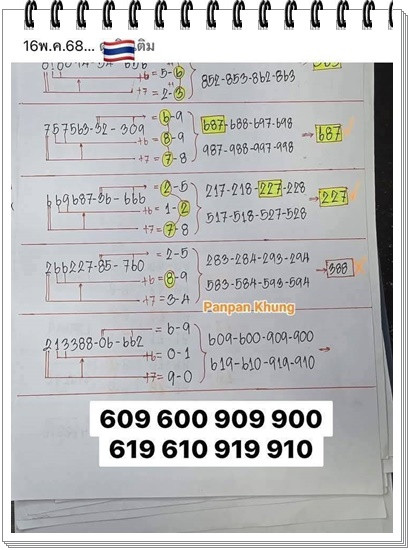 16พ.ค.68...
+6 = 5-6 852-853-862-863
+7 = 2-3
= 6-9 687-688-697-698
757563-32-309 +6 = 8-9 → 687
+7 = 7-8 987-988-997-998
= 2-5 217-218-227-228
669687-36-666 +6 = 1-2 → 227
+7 = 7-8 517-518-527-528
= 2-5 283-284-293-294
266227-85-760 +6 = 8-9 → 388
+7 = 3-4 583-584-593-594
Panpan Khung
= 6-9 609-600-909-900
213388-06-662 +6 = 0-1 →
+7 = 9-0 619-610-919-910
609 600 909 900
619 610 919 910